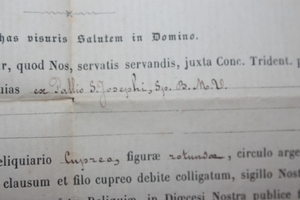 has visuris Salutem in Domino.
ur, quod Nos, servatis servandis, juxta Conc. Trident. p
uias ex Pallio S. Josephi, Sp. B. M. V.
eliquiario Cupreo, figuræ rotundæ, circulo arge
clausum et filo cupreo debite colligatum, sigillo Nost
Reliquim, in Diœcesi Nostra publice f